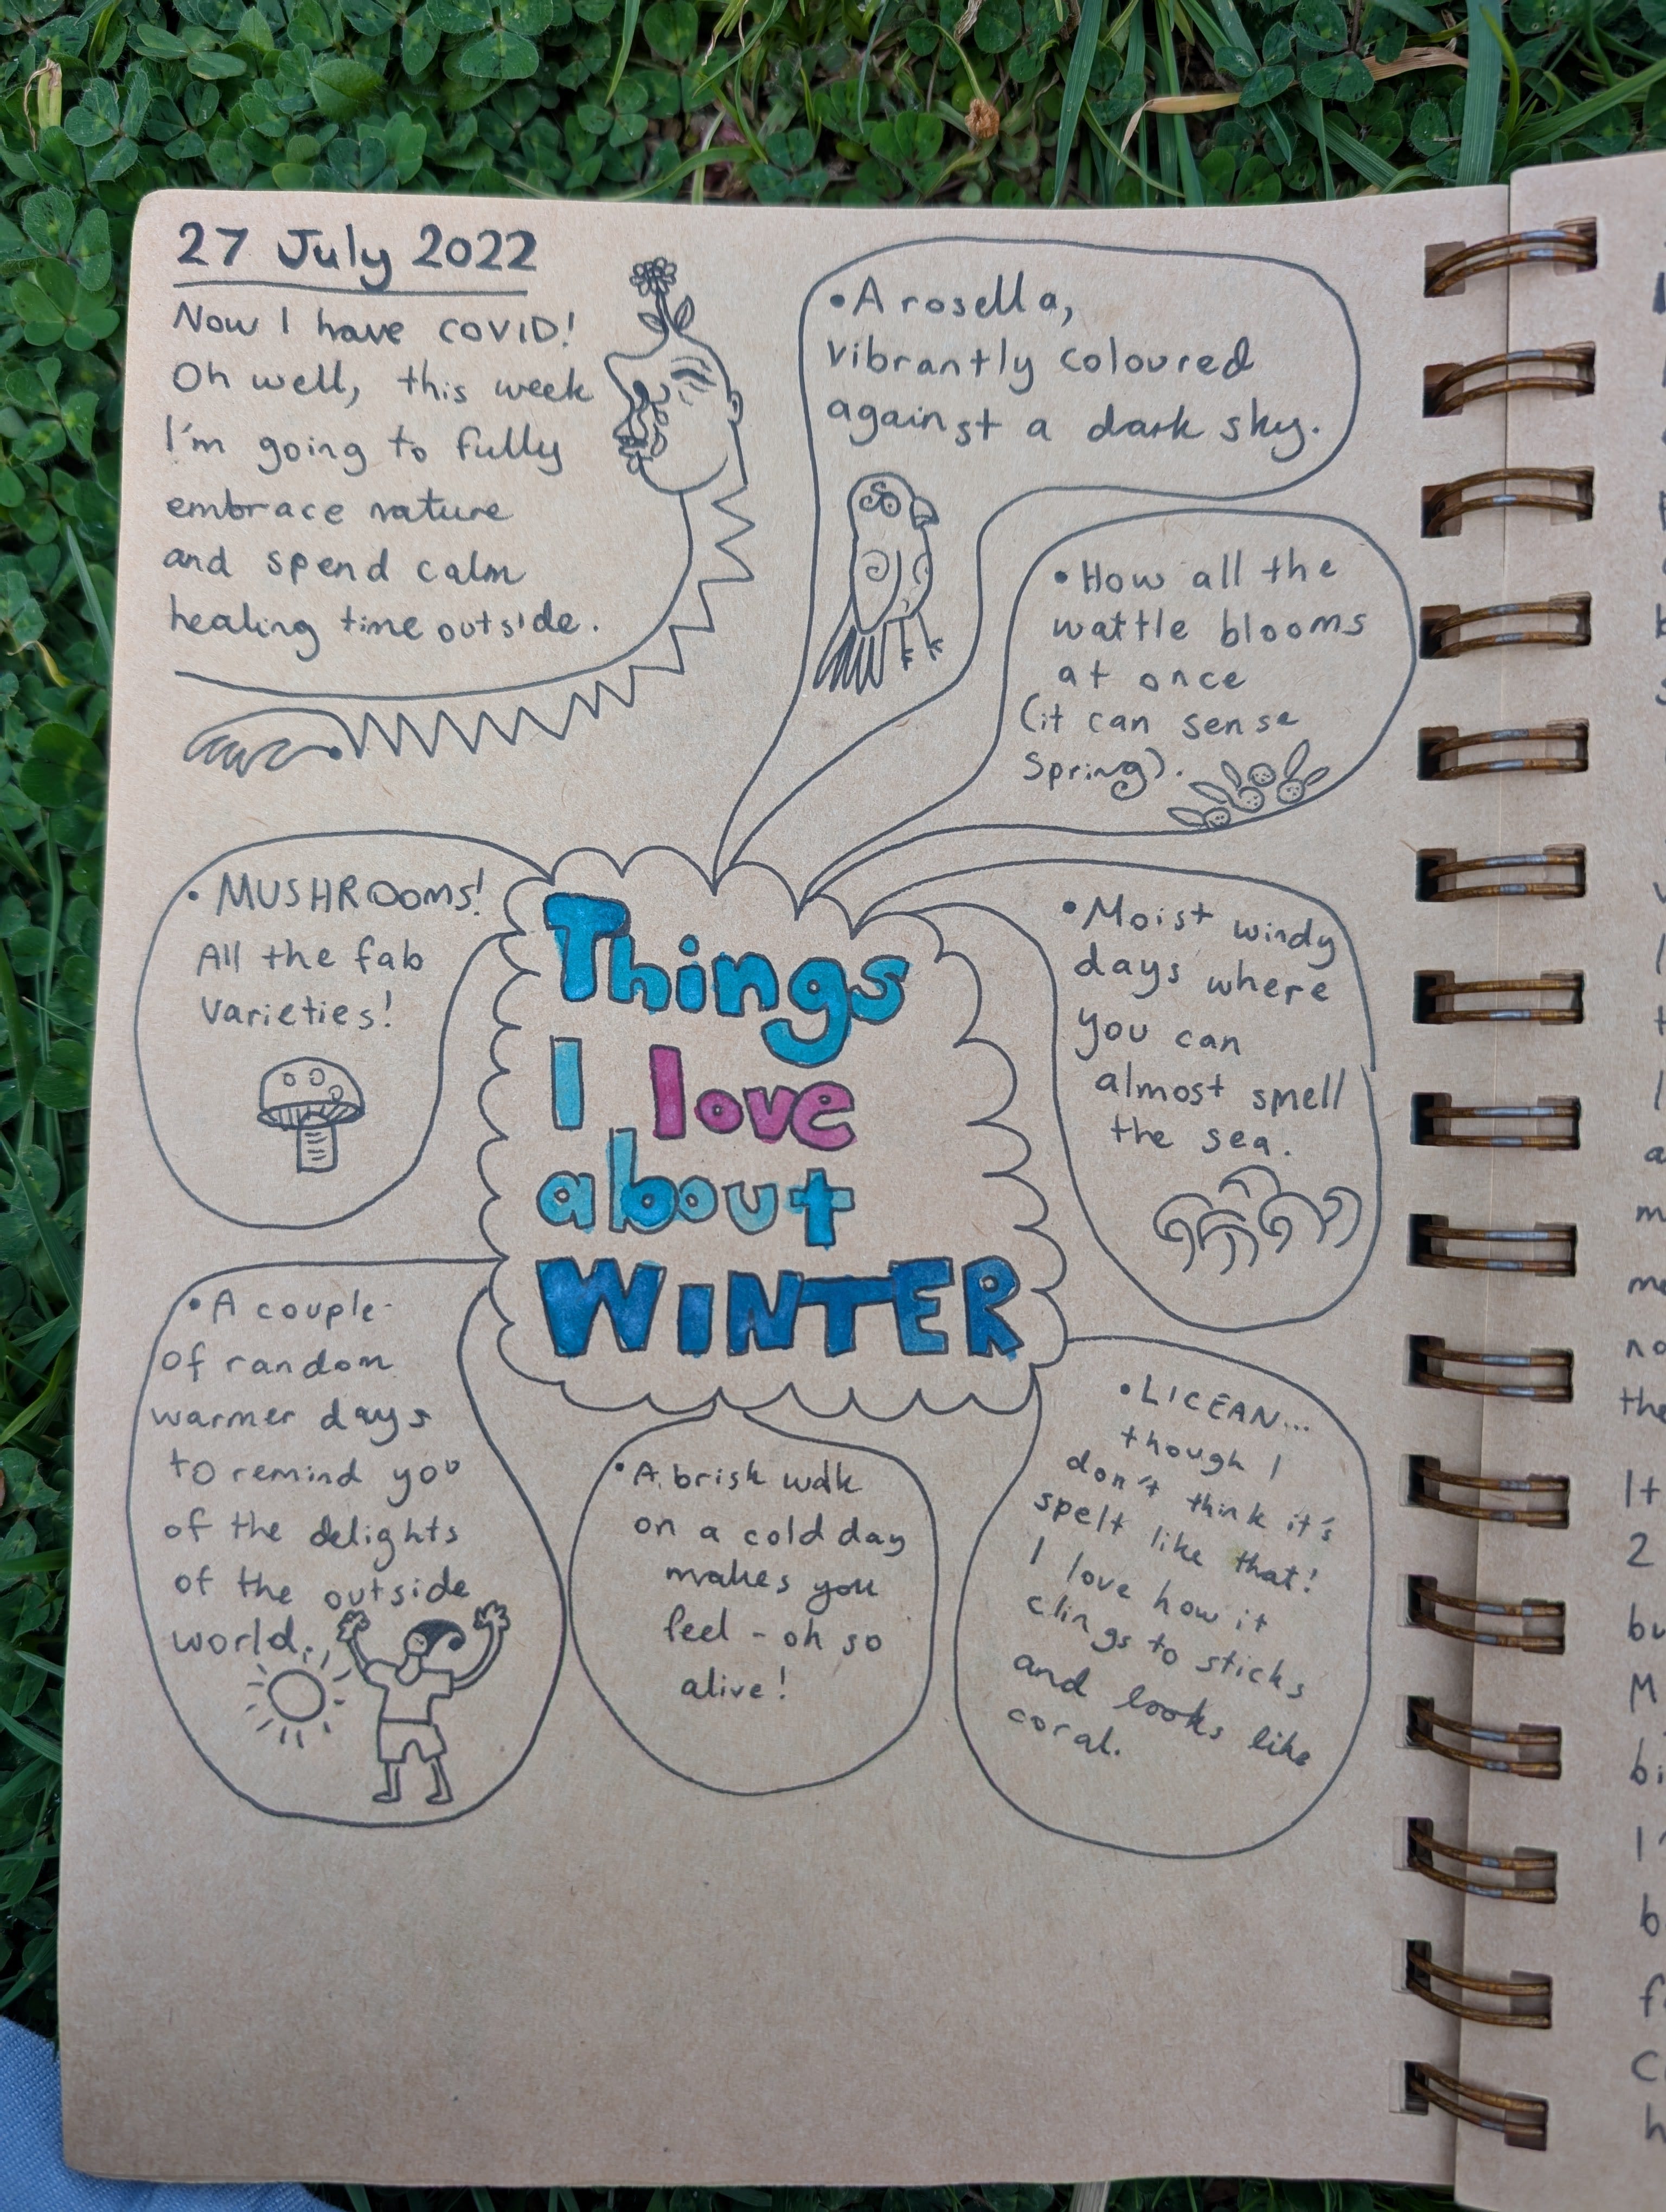 27 July 2022
Now I have COVID!
Oh well, this week
I'm going to fully
embrace nature
and spend calm
healing time outside.
• A rosella,
vibrantly coloured
against a dark sky.
• How all the
wattle blooms
at once
(it can sense
Spring).
• MUSHROOMS!
All the fab
varieties!
Things
I love
about
WINTER
• Moist windy
days where
you can
almost smell
the sea.
• A couple
of random
warmer days
to remind you
of the delights
of the outside
world.
• A brisk walk
on a cold day
makes you
feel - oh so
alive!
• LICEAN...
though I
don't think it's
spelt like that!
I love how it
clings to sticks
and looks like
coral.
no
the
It
2